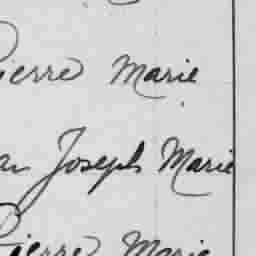 Pierre Marie
an Joseph Marie
Pierre Marie